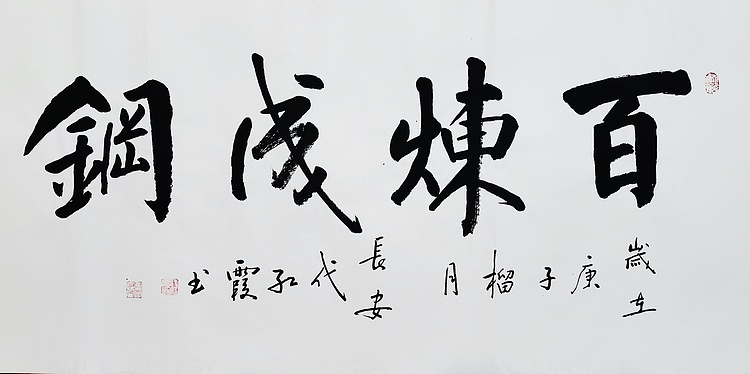 百煉成鋼
歲在庚子榴月
長安代紅霞书